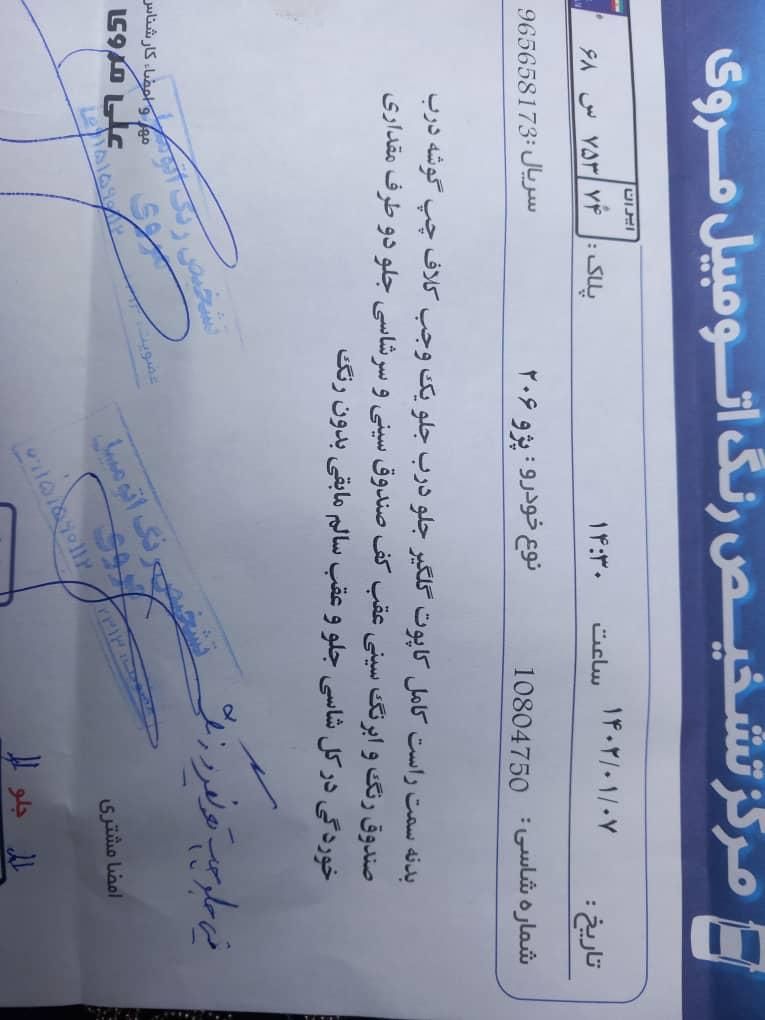 مرکز تشخیص رنگ اتومبیل مروی
تاریخ: ۱۴۰۲/۰۱/۰۷ ساعت ۱۴:۳۰ پلاک: ایران ۷۴ ۷۵۳ س ۶۸
شماره شاسی: 10804750 نوع خودرو: پژو ۲۰۶ سریال: 965658173
بدنه سمت راست کامل کاپوت گلگیر جلو درب جلو یک وجب کلاف چپ گوشه درب
صندوق رنگ و ابرنگ سینی عقب کف صندوق سینی و سرشاسی جلو دو طرف مقداری
خوردگی در کل شاسی جلو و عقب سالم مابقی بدون رنگ
امضا مشتری
مهر و امضاء کارشناس
علی مروی
تشخیص رنگ اتومبیل
مروی
تشخیص رنگ اتومبیل
مروی
عضویت:
جلو